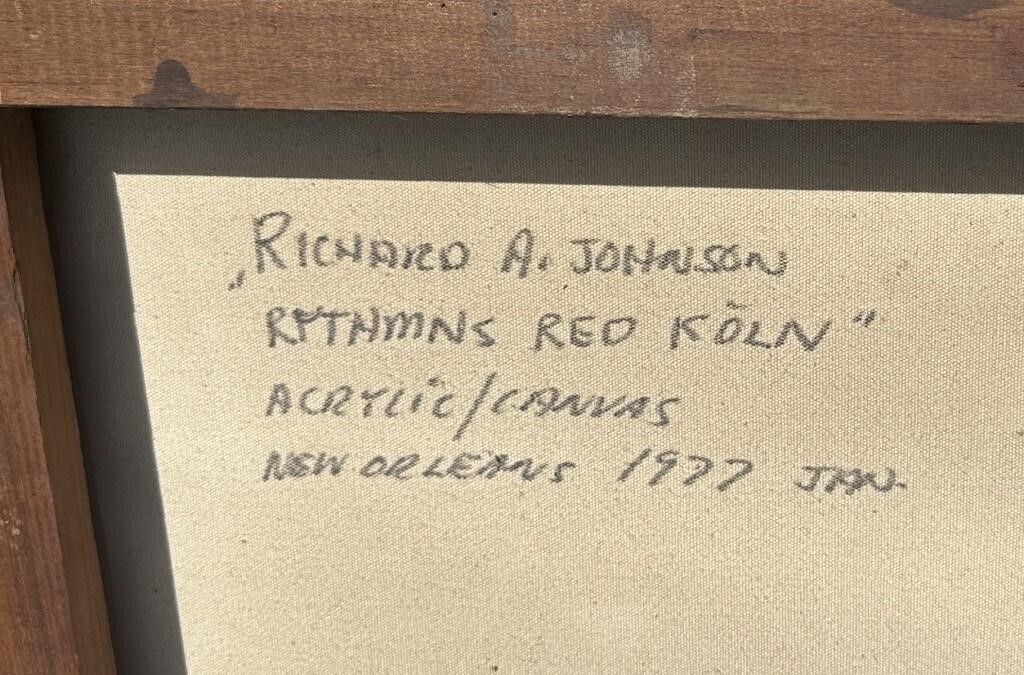 „RICHARD A. JOHNSON
RYTHMNS RED KÖLN"
ACRYLIC/CANVAS
NEW ORLEANS 1977 JAN.